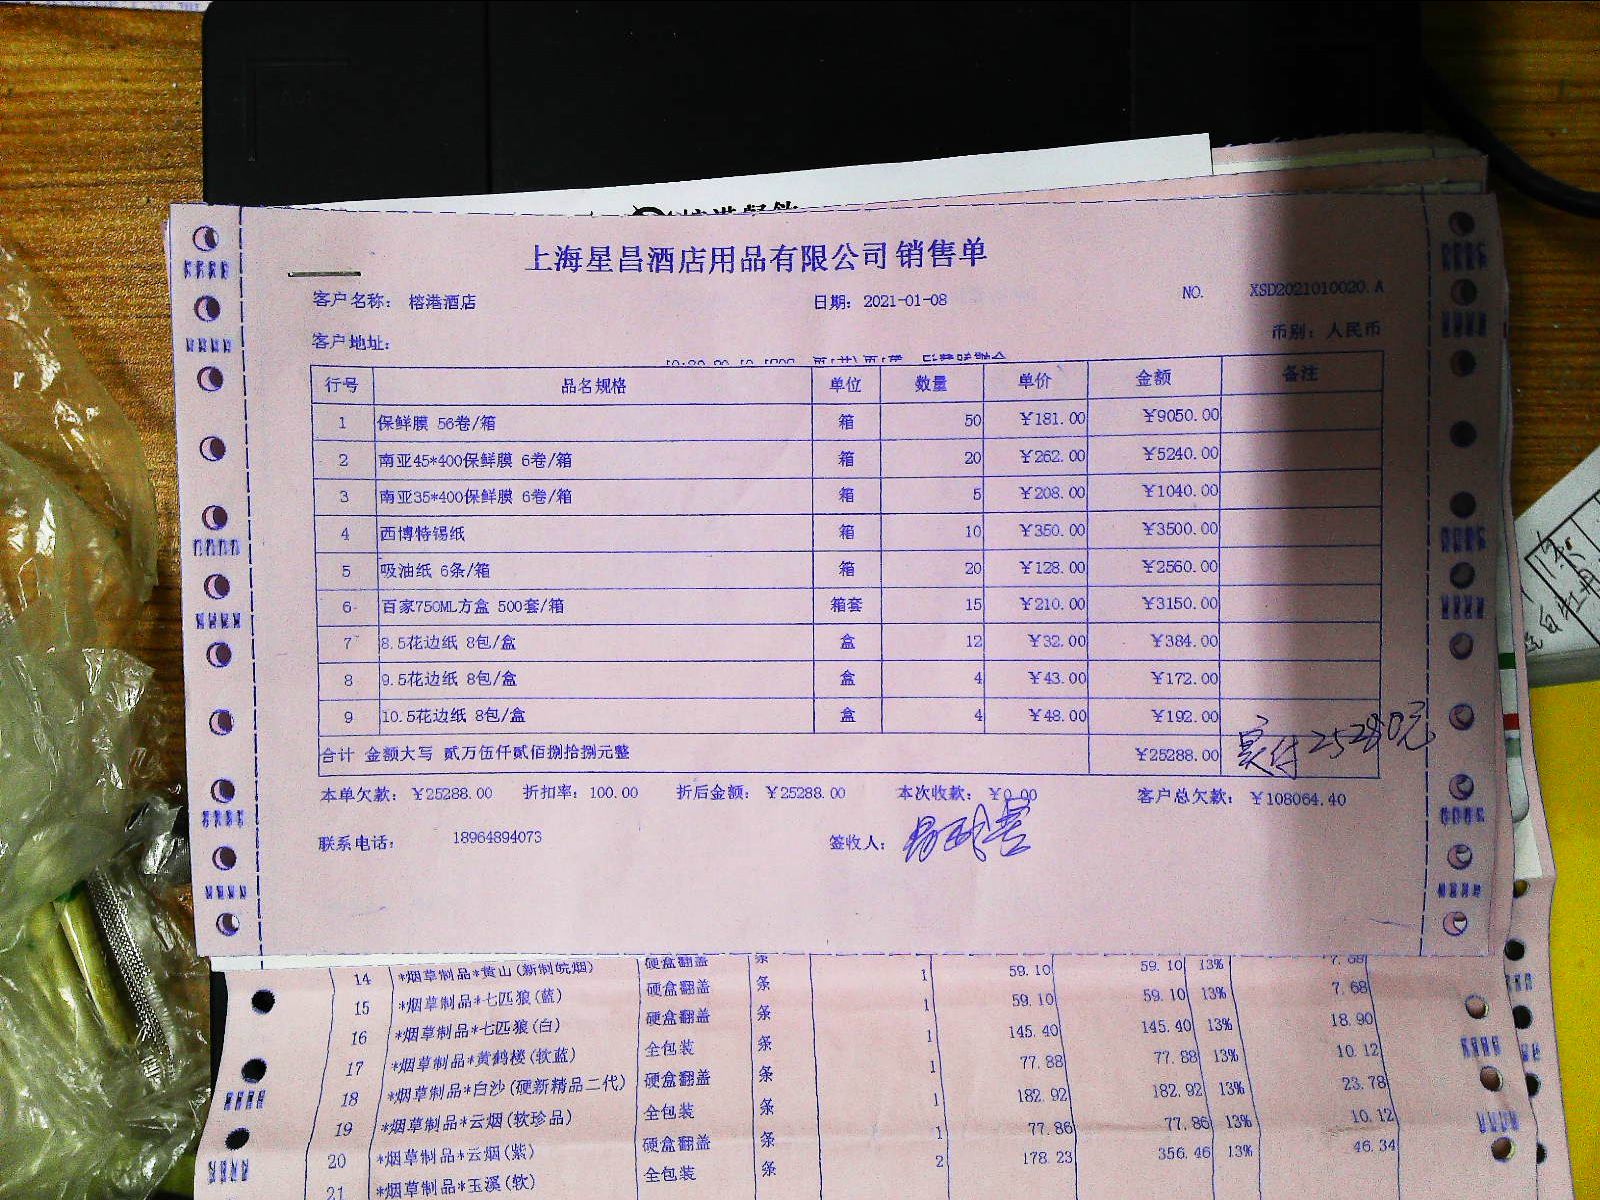 上海星昌酒店用品有限公司 销售单
客户名称： 榕港酒店 日期： 2021-01-08 NO. XSD2021010020.A
客户地址： 币别：人民币
行号 品名规格 单位 数量 单价 金额 备注
1 保鲜膜 56卷/箱 箱 50 ￥181.00 ￥9050.00
2 南亚45*400保鲜膜 6卷/箱 箱 20 ￥262.00 ￥5240.00
3 南亚35*400保鲜膜 6卷/箱 箱 5 ￥208.00 ￥1040.00
4 西博特锡纸 箱 10 ￥350.00 ￥3500.00
5 吸油纸 6条/箱 箱 20 ￥128.00 ￥2560.00
6 百家750ML方盒 500套/箱 箱套 15 ￥210.00 ￥3150.00
7 8.5花边纸 8包/盒 盒 12 ￥32.00 ￥384.00
8 9.5花边纸 8包/盒 盒 4 ￥43.00 ￥172.00
9 10.5花边纸 8包/盒 盒 4 ￥48.00 ￥192.00
合计 金额大写 贰万伍仟贰佰捌拾捌元整 ￥25288.00 实付25280元
本单欠款： ￥25288.00 折扣率： 100.00 折后金额： ￥25288.00 本次收款： ￥0.00 客户总欠款： ￥108064.40
联系电话： 18964894073 签收人：
14 *烟草制品*黄山(新制皖烟) 硬盒翻盖 条 1 59.10 59.10 13% 7.68
15 *烟草制品*七匹狼(蓝) 硬盒翻盖 条 1 59.10 59.10 13% 7.68
16 *烟草制品*七匹狼(白) 硬盒翻盖 条 1 145.40 145.40 13% 18.90
17 *烟草制品*黄鹤楼(软蓝) 全包装 条 1 77.88 77.88 13% 10.12
18 *烟草制品*白沙(硬新精品二代) 硬盒翻盖 条 1 182.92 182.92 13% 23.78
19 *烟草制品*云烟(软珍品) 全包装 条 1 77.86 77.86 13% 10.12
20 *烟草制品*云烟(紫) 硬盒翻盖 条 2 178.23 356.46 13% 46.34
21 *烟草制品*玉溪(软) 全包装 条